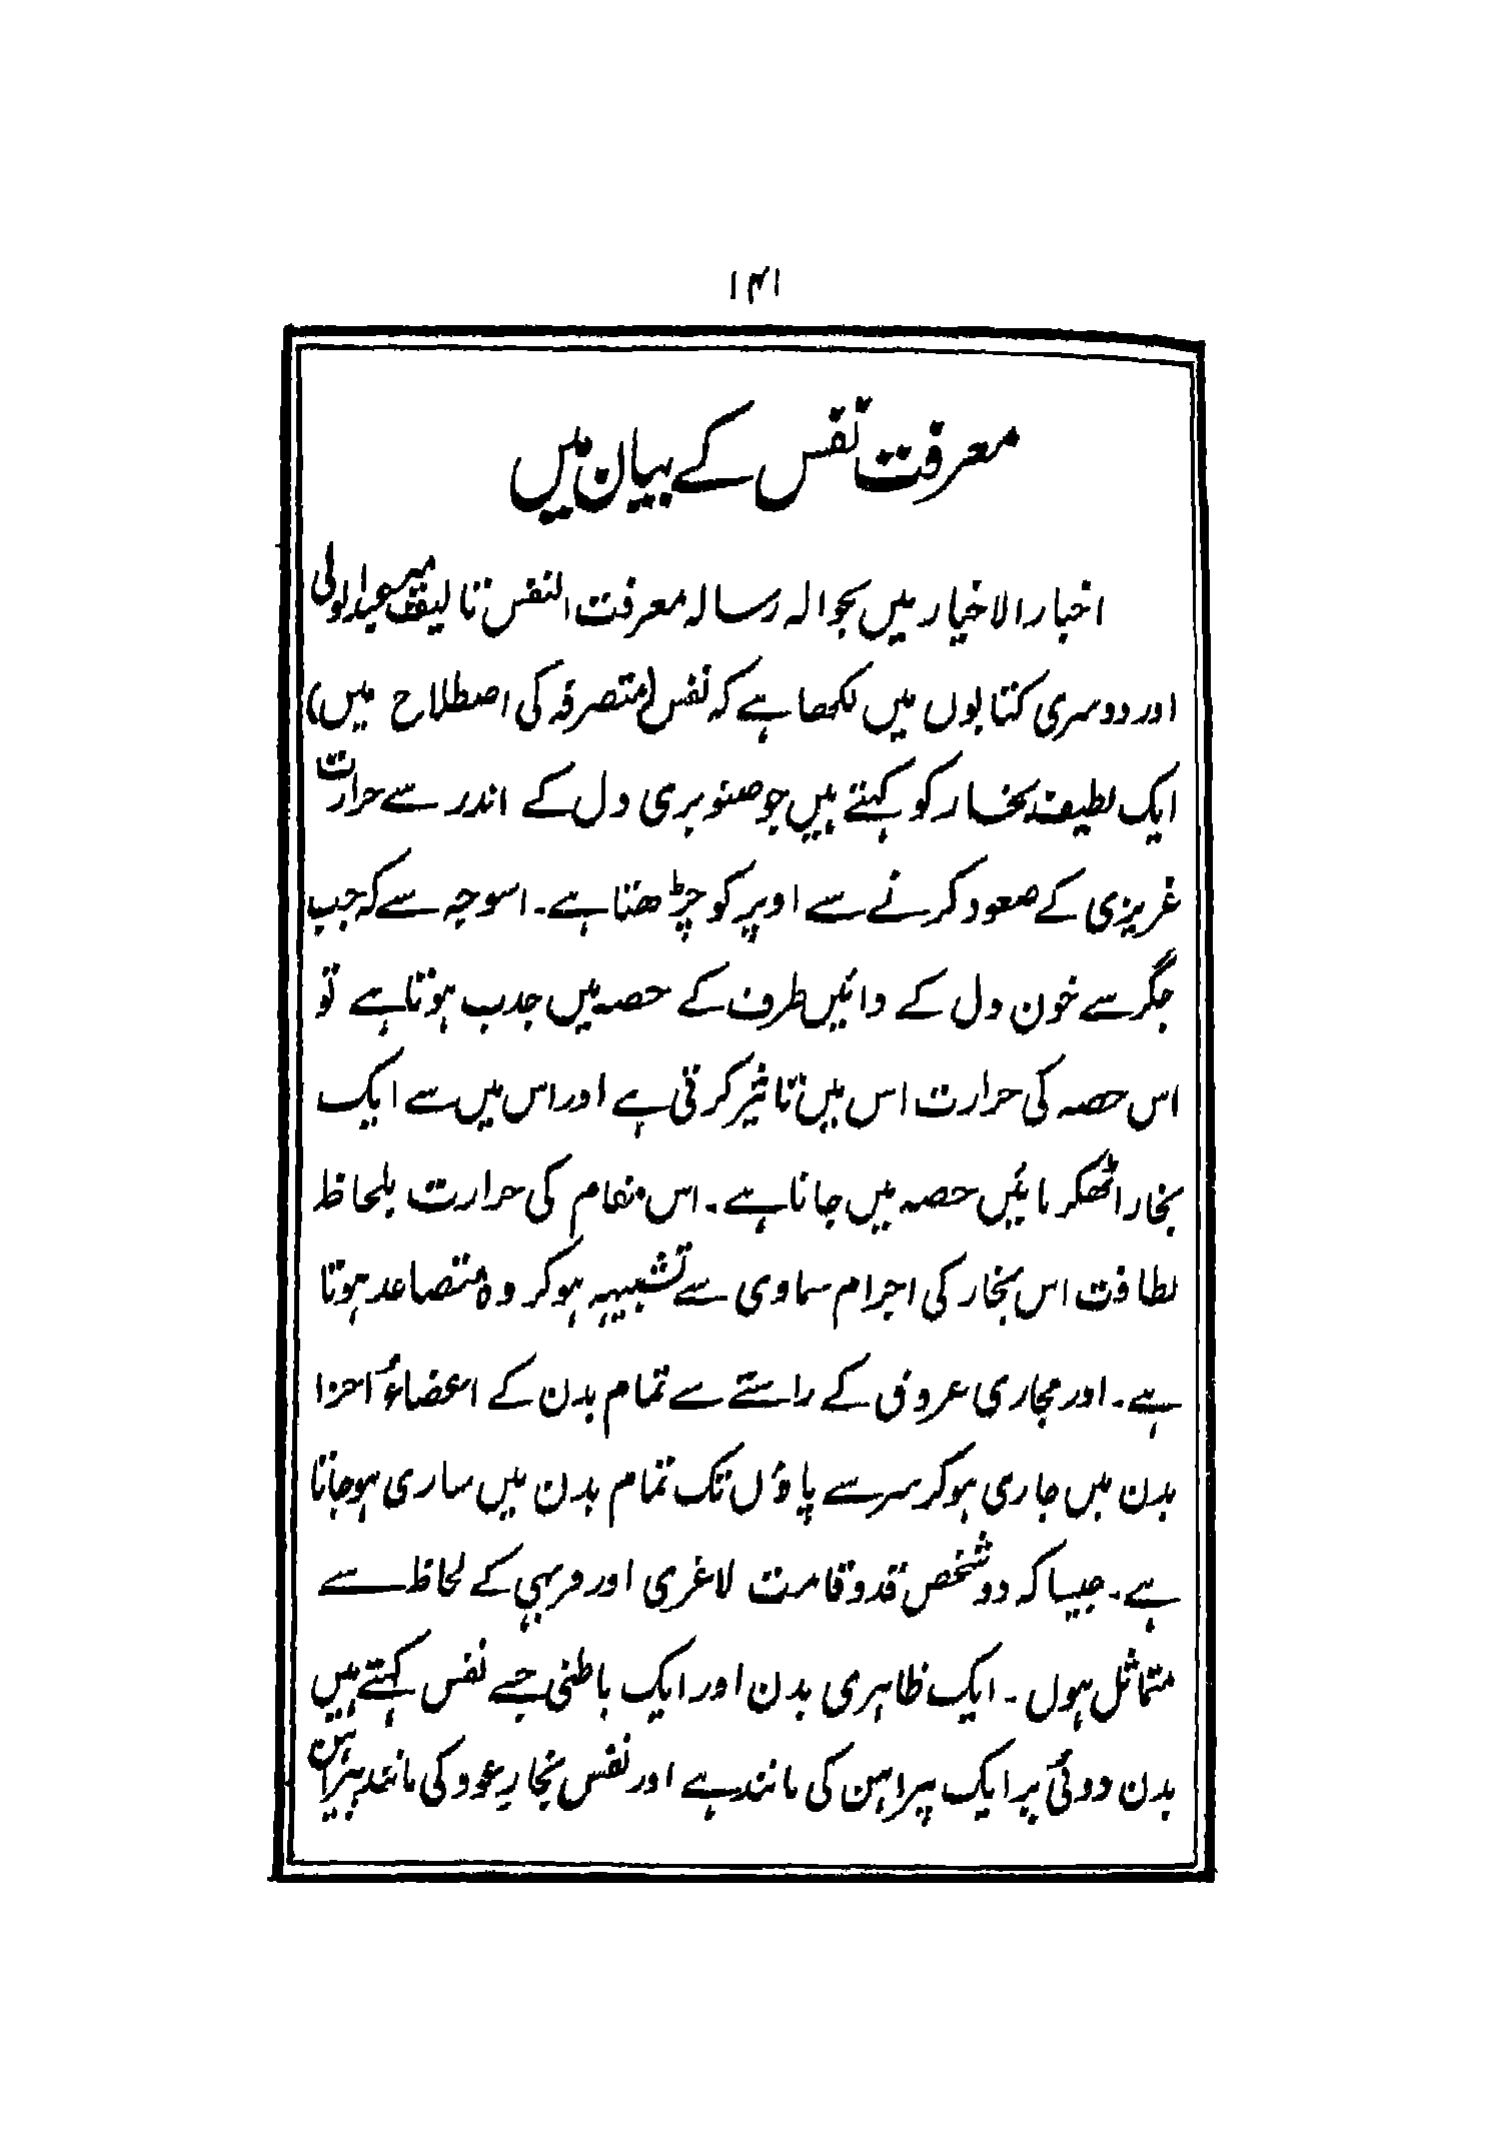 ۱۴۱
معرفت نفس کے بیان میں
اخبار الاخیار میں بحوالہ رسالہ معرفت النفس تالیف میر عبدالولی
اور دوسری کتابوں میں لکھا ہے کہ نفس (متصرفہ کی اصطلاح میں)
ایک لطیفہ بخار کو کہتے ہیں جو صنوبری دل کے اندر سے حرارت
غریزی کے صعود کرنے سے اوپر کو چڑھتا ہے۔ اسوجہ سے کہ جب
جگر سے خون دل کے دائیں طرف کے حصہ میں جذب ہوتا ہے تو
اس حصہ کی حرارت اس میں تاثیر کرتی ہے اور اس میں سے ایک
بخار اٹھکر بائیں حصہ میں جاتا ہے۔ اس مقام کی حرارت بلحاظ
لطافت اس بخار کی اجرام سماوی سے تشبیہہ ہو کر وہ متصاعد ہوتا
ہے۔ اور مجاری عروق کے راستے سے تمام بدن کے اعضاء اجزا
بدن میں جاری ہو کر سر سے پاؤں تک تمام بدن میں ساری ہو جاتا
ہے۔ جیسا کہ دو شخص قد و قامت لاغری اور فربہی کے لحاظ سے
متماثل ہوں۔ ایک ظاہری بدن اور ایک باطنی جسے نفس کہتے ہیں
بدن دوئی پر ایک پیراہن کی مانند ہے اور نفس بخار عود کی مانند پیراہن